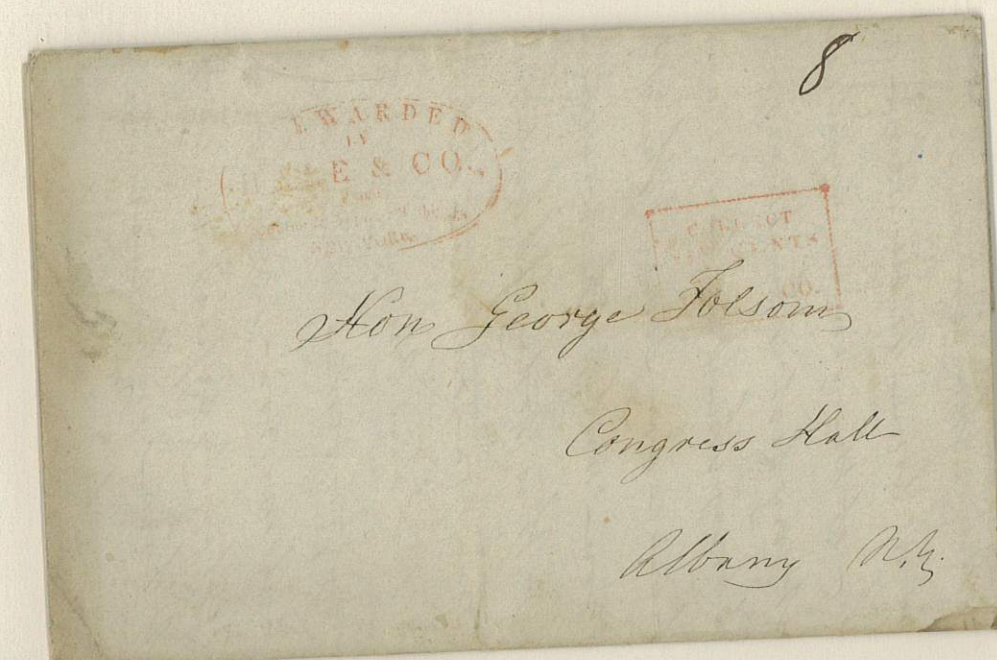 8
EWARDED
E & CO.
NEW YORK
CENTS
CO.
Hon George Folsom
Congress Hall
Albany N.Y.